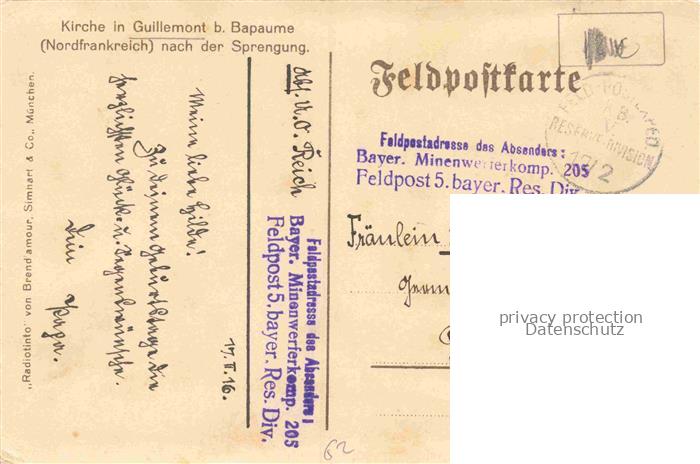 Kirche in Guillemont b. Bapaume
(Nordfrankreich) nach der Sprengung.
„Radiotinto" von Brend'amour, Simhart & Co., München.
17. II. 16.
Meine liebe Hilde!
Zu deinem Geburtstage die
herzlichsten Glück- u. Segenswünsche.
Dein Papa.
Abs. U.O. Reich
Feldpostadresse des Absenders:
Bayer. Minenwerferkomp. 205
Feldpost 5. bayer. Res. Div.
Feldpostkarte
K.B.
RESERVE-DIVISION
Feldpostadresse des Absenders:
Bayer. Minenwerferkomp. 205
Feldpost 5. bayer. Res. Div.
Fräulein
Germ
privacy protection
Datenschutz
62